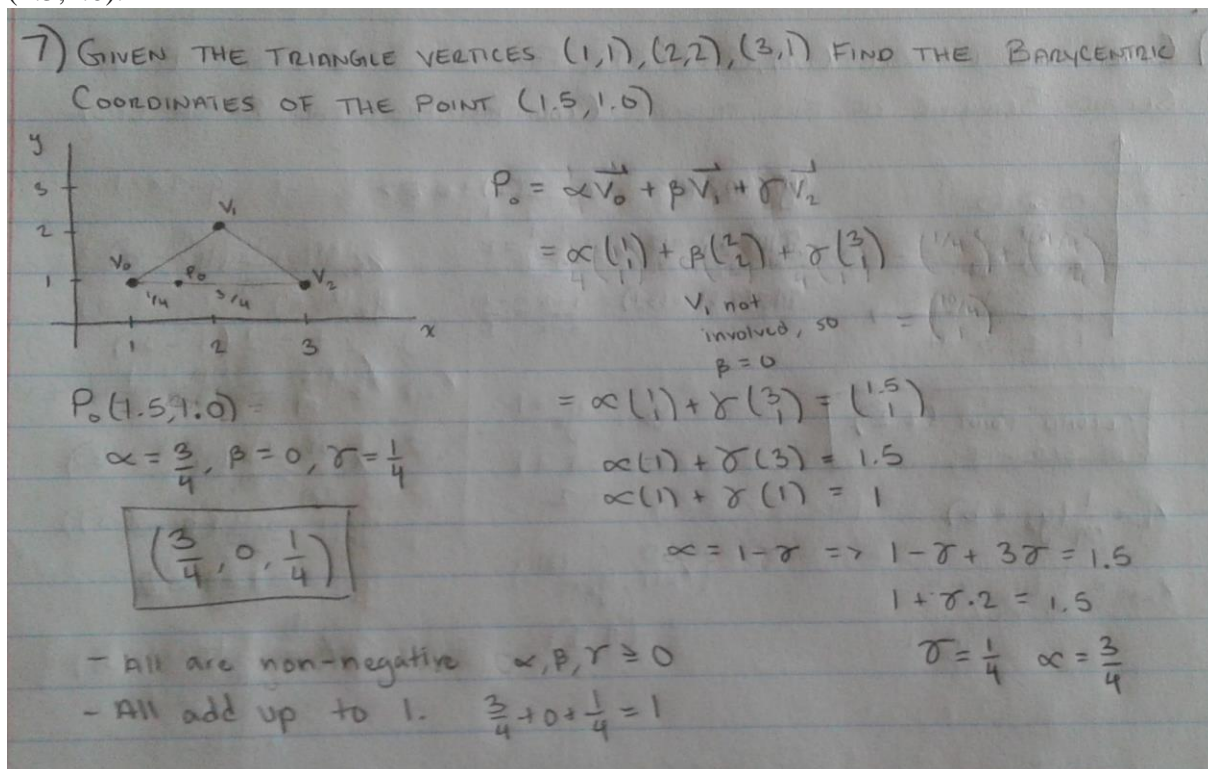 7) GIVEN THE TRIANGLE VERTICES (1,1), (2,2), (3,1) FIND THE BARYCENTRIC
COORDINATES OF THE POINT (1.5, 1.0)
y
3
2
1
V₁
V₀
P₀
V₂
1/4 3/4
1 2 3
x
P₀ = αV₀ + βV₁ + γV₂
= α(1 1) + β(2 2) + γ(3 1)
V₁ not
involved, so
β = 0
= α(1 1) + γ(3 1) = (1.5 1)
α(1) + γ(3) = 1.5
α(1) + γ(1) = 1
α = 1-γ => 1-γ + 3γ = 1.5
1 + γ·2 = 1.5
γ = 1/4 α = 3/4
P₀(1.5, 1.0)
α = 3/4, β = 0, γ = 1/4
(3/4, 0, 1/4)
- All are non-negative α, β, γ ≥ 0
- All add up to 1. 3/4 + 0 + 1/4 = 1